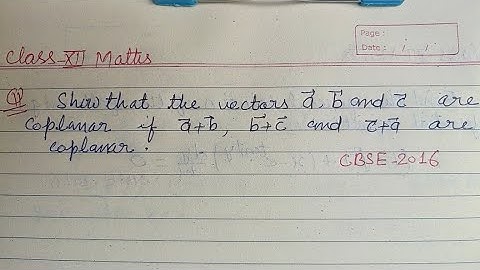 Page :
Date : / /
Class-XII Maths
Q Show that the vectors a⃗, b⃗ and c⃗ are
coplanar if a⃗+b⃗, b⃗+c⃗ and c⃗+a⃗ are
coplanar.
CBSE-2016